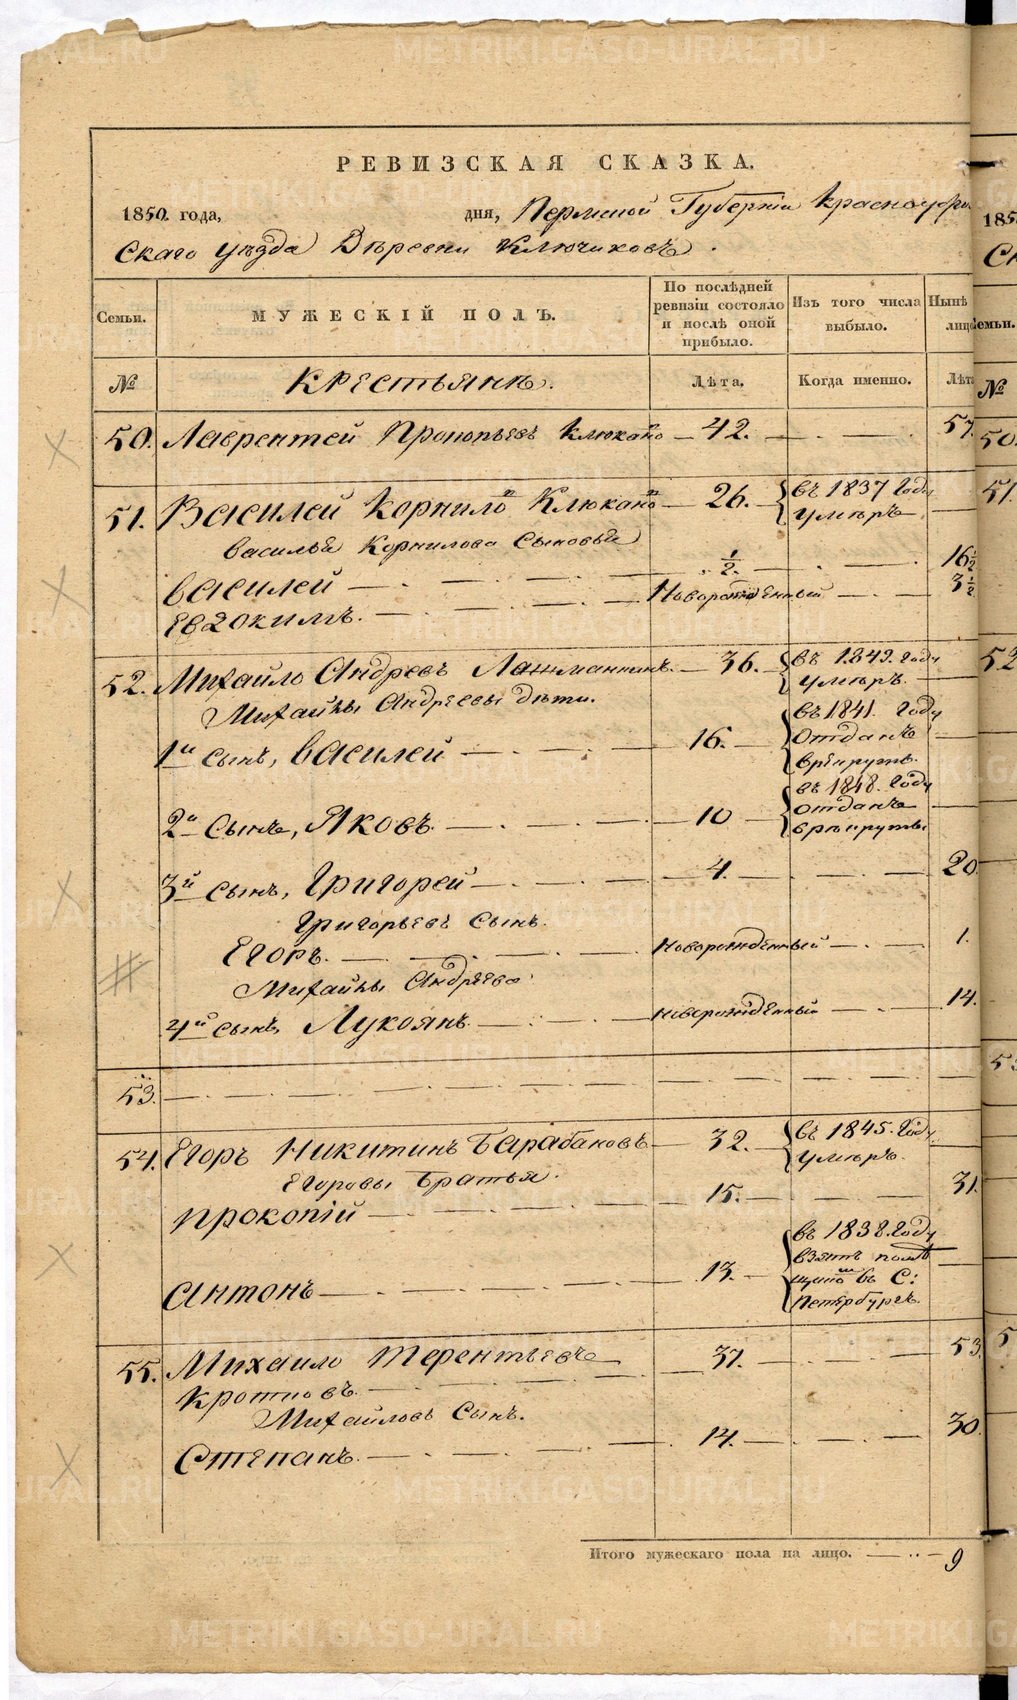 РЕВИЗСКАЯ СКАЗКА.
1850. года, дня, Пермской Губерніи Красноуфим
скаго уѣзда Деревни Ключиковъ.
Семьи. МУЖЕСКІЙ ПОЛЪ. По послѣдней ревизіи состояло и послѣ оной прибыло. Изъ того числа выбыло. Нынѣ лицо
№ Крестьяне. Лѣта. Когда именно. Лѣта
50. Лаврентей Прокопьевъ Клюкано 42. 57.
51. Василей Корнило Клюкано 26. въ 1837 году
умѣръ
Василья Корнилова сыновья
Василей ½. 16½
Евдокимъ. Новорожденный 3½
52. Михайло Андреевъ Лашмантинъ. 36. въ 1849. году
умѣръ.
Михайлы Андреевы дѣти.
1й сынъ, Василей 16. въ 1841. году
отданъ
врекруты.
2й сынъ, Яковъ. 10 въ 1848. году
отданъ
врекруты
3й сынъ, Григорей 4. 20.
Григорьевъ сынъ.
Егоръ. новорожденный 1.
Михайлы Андреева
4й сынъ, Лукоянъ новорожденный 14.
53.
54. Егоръ Никитинъ Барабановъ 32. въ 1845. году
умѣръ.
Егоровы братья.
Прокопій 15. 31.
Антонъ 13. въ 1838. году
взятъ
въ С:
Петербургъ.
55. Михаило Терентьевъ 37. 53.
Кротковъ.
Михайловъ сынъ.
Степанъ. 14. 30.
Итого мужескаго пола на лицо. 9
185
№
50.
51.
52
METRIKI.GASO-URAL.RU